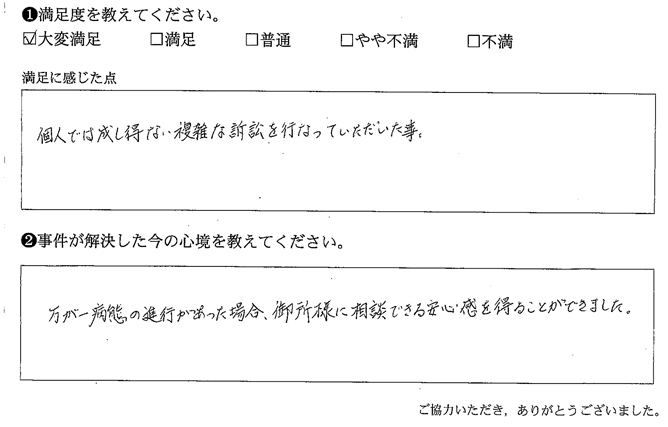 ❶満足度を教えてください。
☑大変満足 □満足 □普通 □やや不満 □不満
満足に感じた点
個人では成し得ない複雑な訴訟を行なっていただいた事。
❷事件が解決した今の心境を教えてください。
万が一病態の進行があった場合、御所様に相談できる安心感を得ることができました。
ご協力いただき，ありがとうございました。